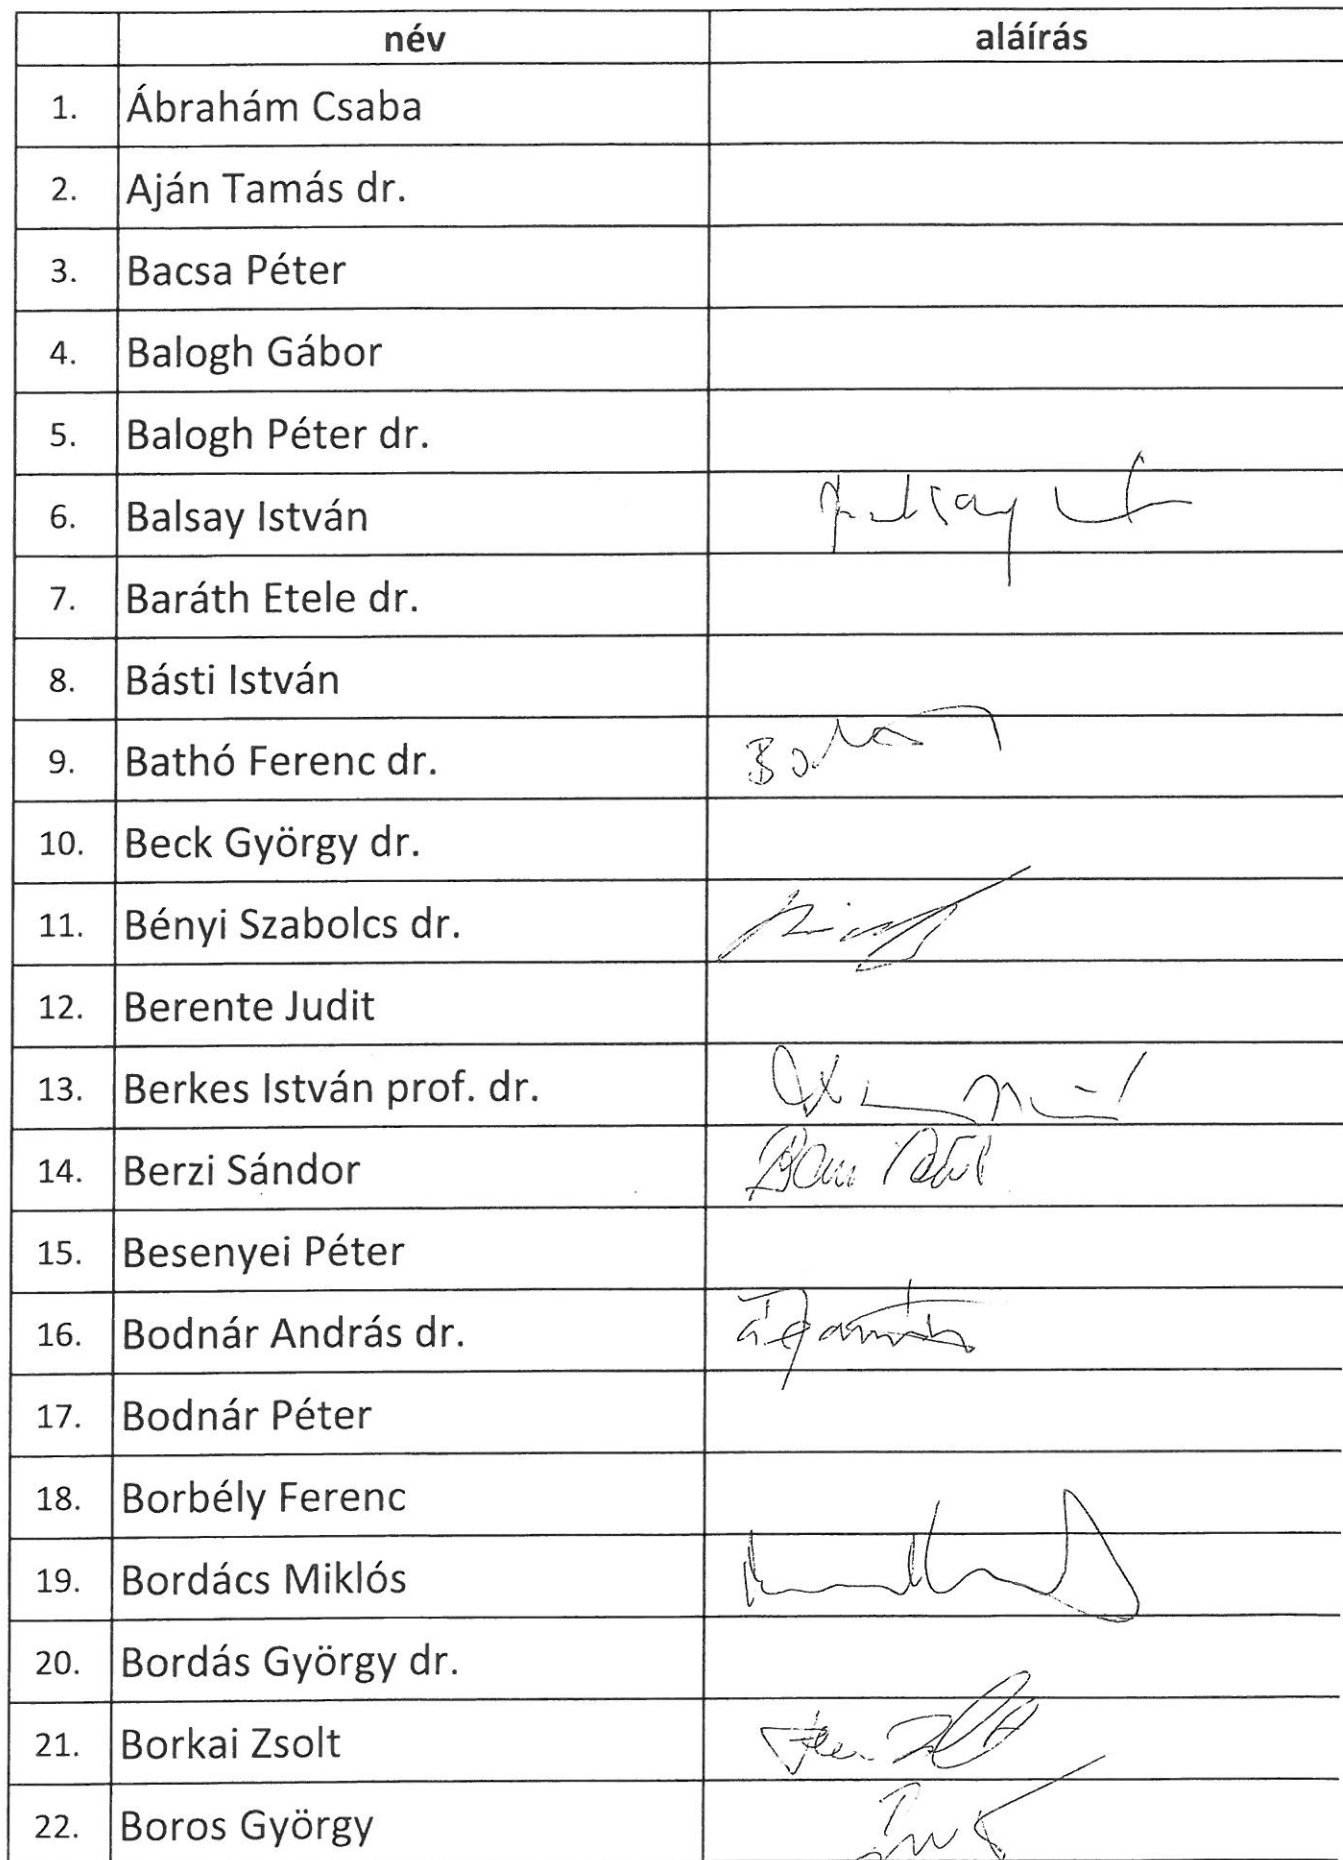 név aláírás
1. Ábrahám Csaba
2. Aján Tamás dr.
3. Bacsa Péter
4. Balogh Gábor
5. Balogh Péter dr.
6. Balsay István
7. Baráth Etele dr.
8. Básti István
9. Bathó Ferenc dr.
10. Beck György dr.
11. Bényi Szabolcs dr.
12. Berente Judit
13. Berkes István prof. dr.
14. Berzi Sándor
15. Besenyei Péter
16. Bodnár András dr.
17. Bodnár Péter
18. Borbély Ferenc
19. Bordács Miklós
20. Bordás György dr.
21. Borkai Zsolt
22. Boros György